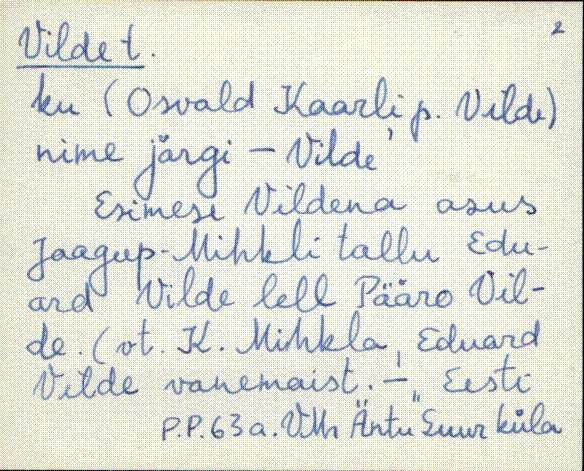 2
Vilde t.
ku (Osvald Kaarli p. Vilde)
nime järgi – Vilde'
Esimese Vildena asus
Jaagup-Mihkli tallu Edu-
ard Vilde lell Pääro Vil-
de. (vt. K. Mihkla, Eduard
Vilde vanemaist. – „Eesti
P.P. 63 a. VMr Äntu Suurküla